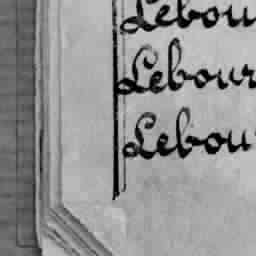 Lebou
Lebour
Lebou